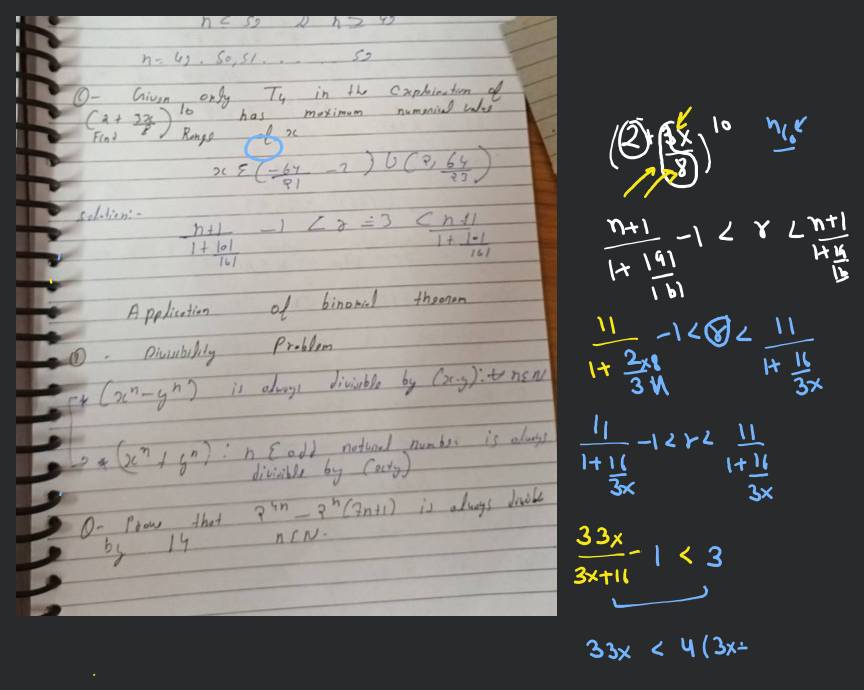 n < 52 n > 49
n = 49, 50, 51 . . . . . . 52
Q- Given only T4 in the expansion of
(2 + 3x/8)^10 has maximum numerical value
Find Range of x
x ε (-64/21 -2) U (2, 64/21)
Solution:-
n+1/1+|a|/|b| -1 < r = 3 < n+1/1+|a|/|b|
Application of binomial theorem
① . Divisibility Problem
* (xⁿ-yⁿ) is always divisible by (x-y): ∀ n∈N
→ * (xⁿ + yⁿ): n ε odd natural number is always
divisible by (x+y)
Q- Prove that 2^4n - 2ⁿ(7n+1) is always divisible
by 14 n∈N.
(2 + 3x/8)^10
n+1/1+|a|/|b| -1 < r < n+1/1+|a|/|b|
11/1+2×8/3x -1 < r < 11/1+16/3x
11/1+16/3x -1 < r < 11/1+16/3x
33x/3x+16 - 1 < 3
33x < 4(3x+